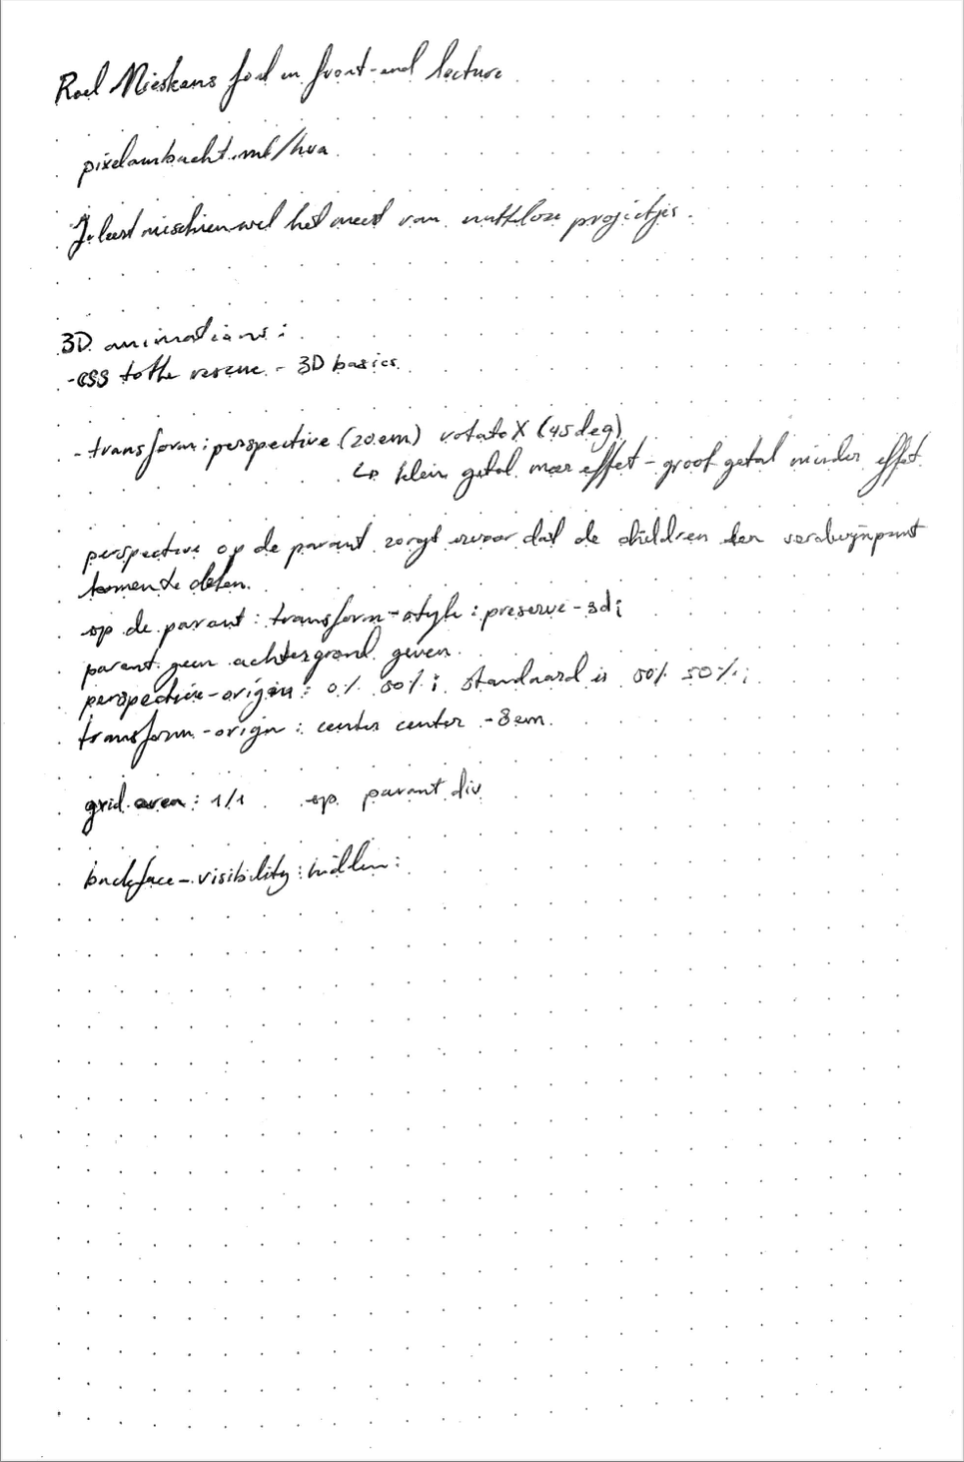 Roel Nieskens fool in front-end lecture
pixelambacht.nl/hva
Je leert misschien wel het meest van nutteloze projectjes.
3D animations:
- CSS to the rescue - 3D basics
- transform: perspective (20em) rotateX (45deg)
↳ klein getal meer effect - groot getal minder effect
perspective op de parent zorgt ervoor dat de children den verdwijnpunt
komen te delen.
op de parent: transform-style: preserve-3d;
parent geen achtergrond geven.
perspective-origin: 0% 50%; standaard is 50% 50%;
transform-origin: center center -8em.
grid-area: 1/1 op parent div
backface-visibility: hidden;